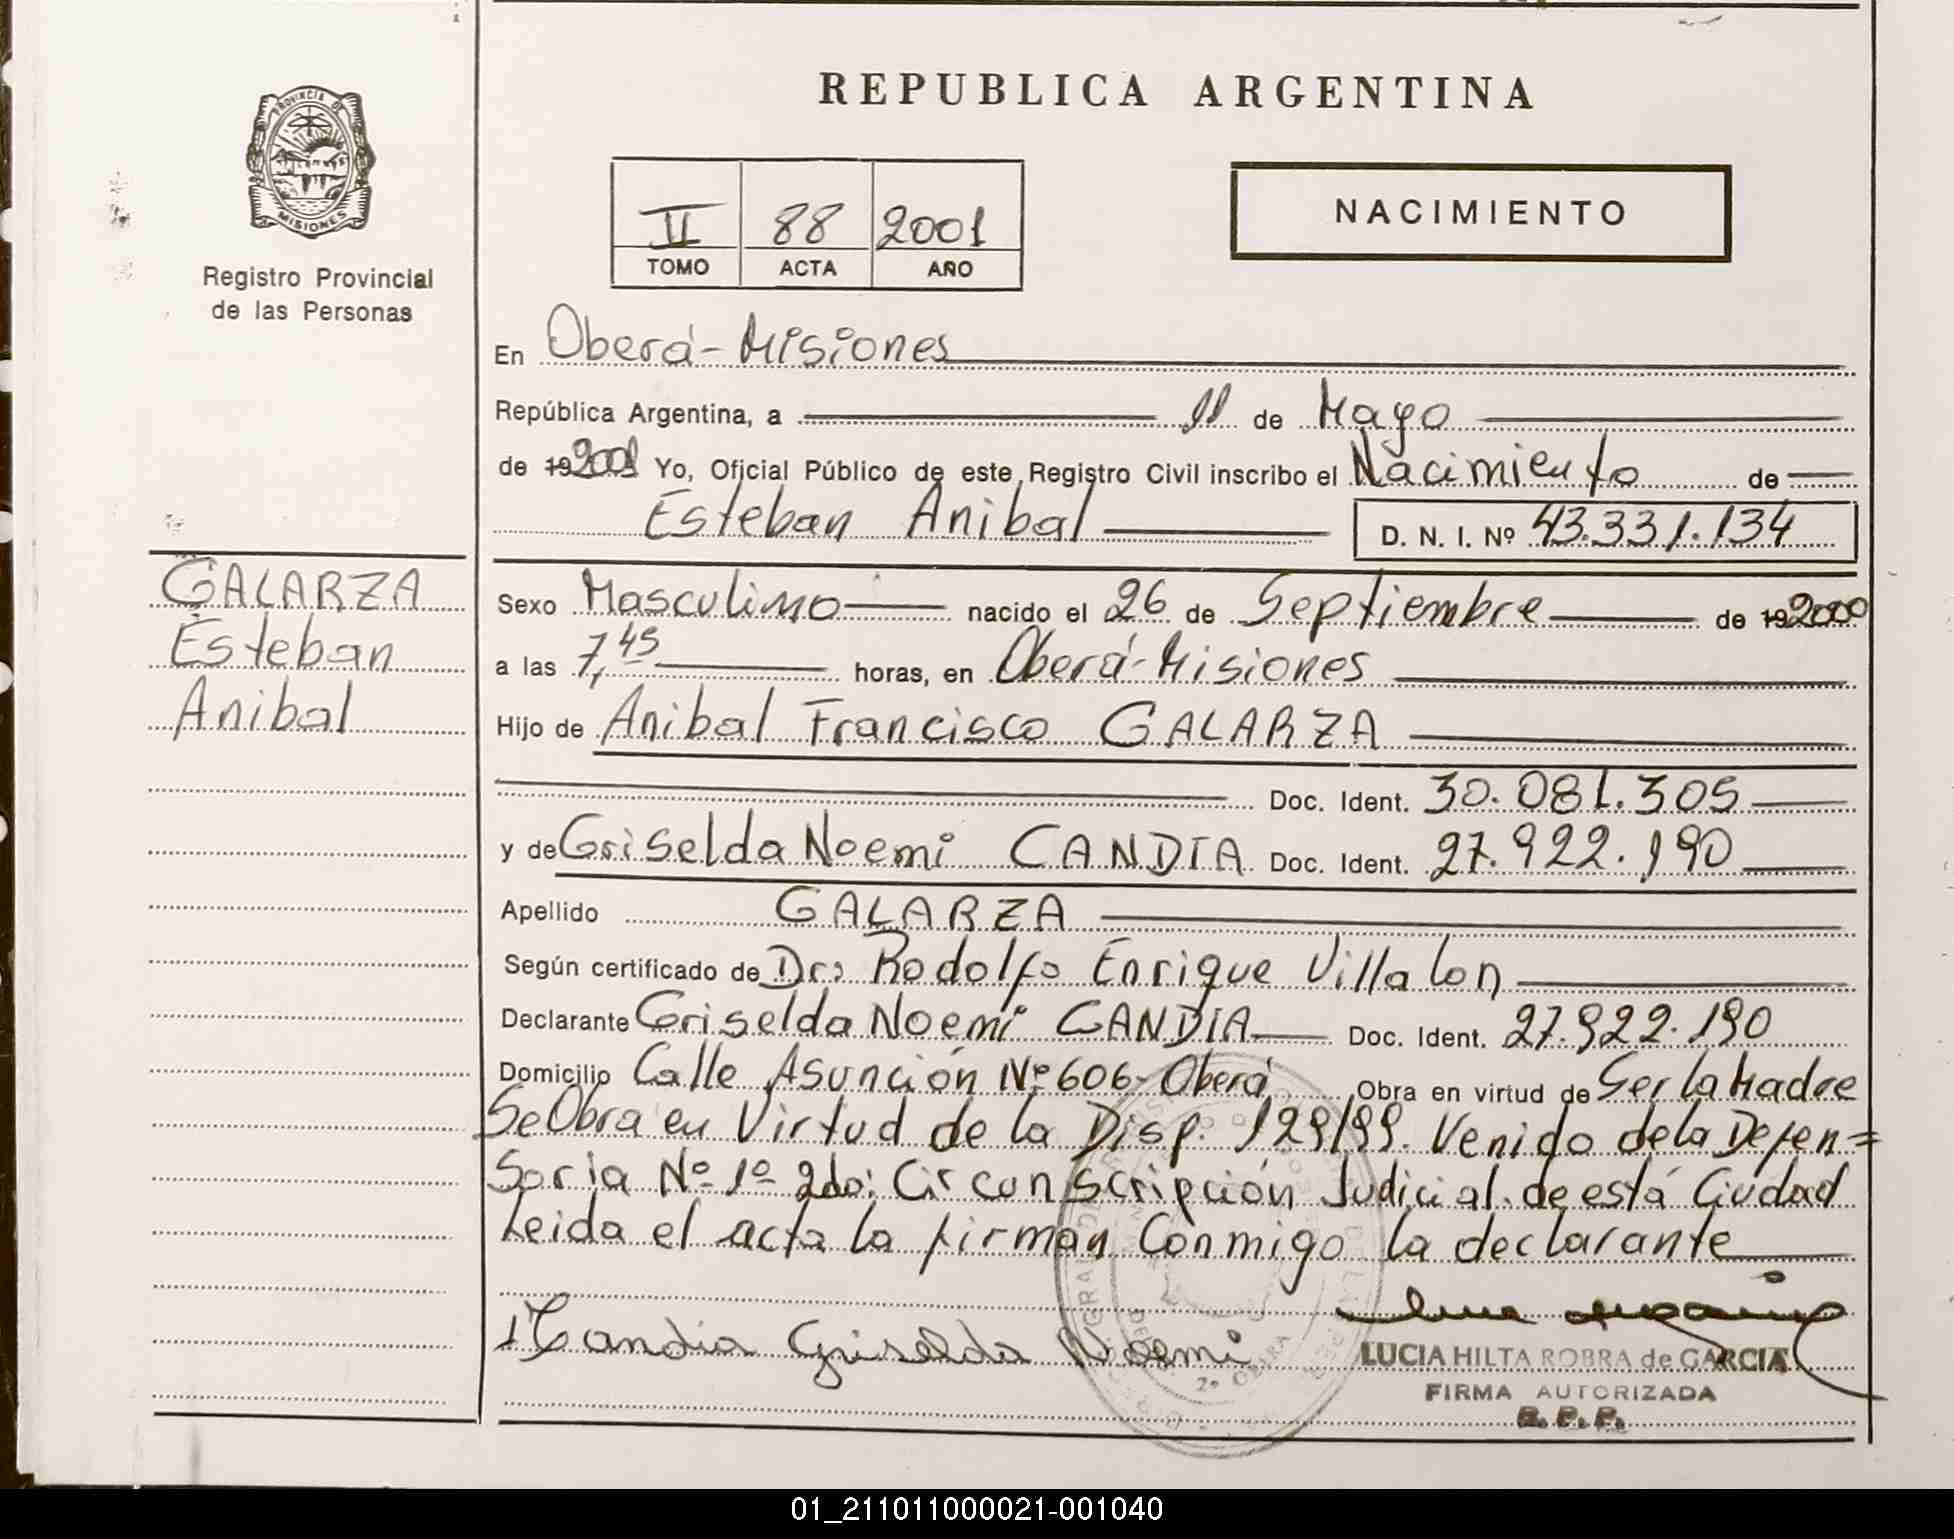 REPUBLICA ARGENTINA
PROVINCIA DE
MISIONES
Registro Provincial
de las Personas
II 88 2001
TOMO ACTA AÑO
NACIMIENTO
En Oberá-Misiones
República Argentina, a 11 de Mayo
de 19 2001 Yo, Oficial Público de este Registro Civil inscribo el Nacimiento de
Esteban Anibal D. N. I. Nº 43.331.134
GALARZA
Esteban
Anibal
Sexo Masculino nacido el 26 de Septiembre de 19 2000
a las 7,45 horas, en Oberá-Misiones
Hijo de Anibal Francisco GALARZA
Doc. Ident. 30.081.305
y de Griselda Noemi CANDIA Doc. Ident. 27.922.190
Apellido GALARZA
Según certificado de Dr: Rodolfo Enrique Villalon
Declarante Griselda Noemi CANDIA Doc. Ident. 27.922.190
Domicilio Calle Asunción Nº 606- Oberá Obra en virtud de Ser la Madre
Se Obra en Virtud de la Disp. 129/99. Venido de la Defen=
Soria Nº 1º 2do: Circunscripción Judicial de está Ciudad
Leida el acta la firman Conmigo la declarante
Candia Griselda Noemi
LUCIA HILTA ROBRA de GARCIA
FIRMA AUTORIZADA
R. P. P.
01_211011000021-001040